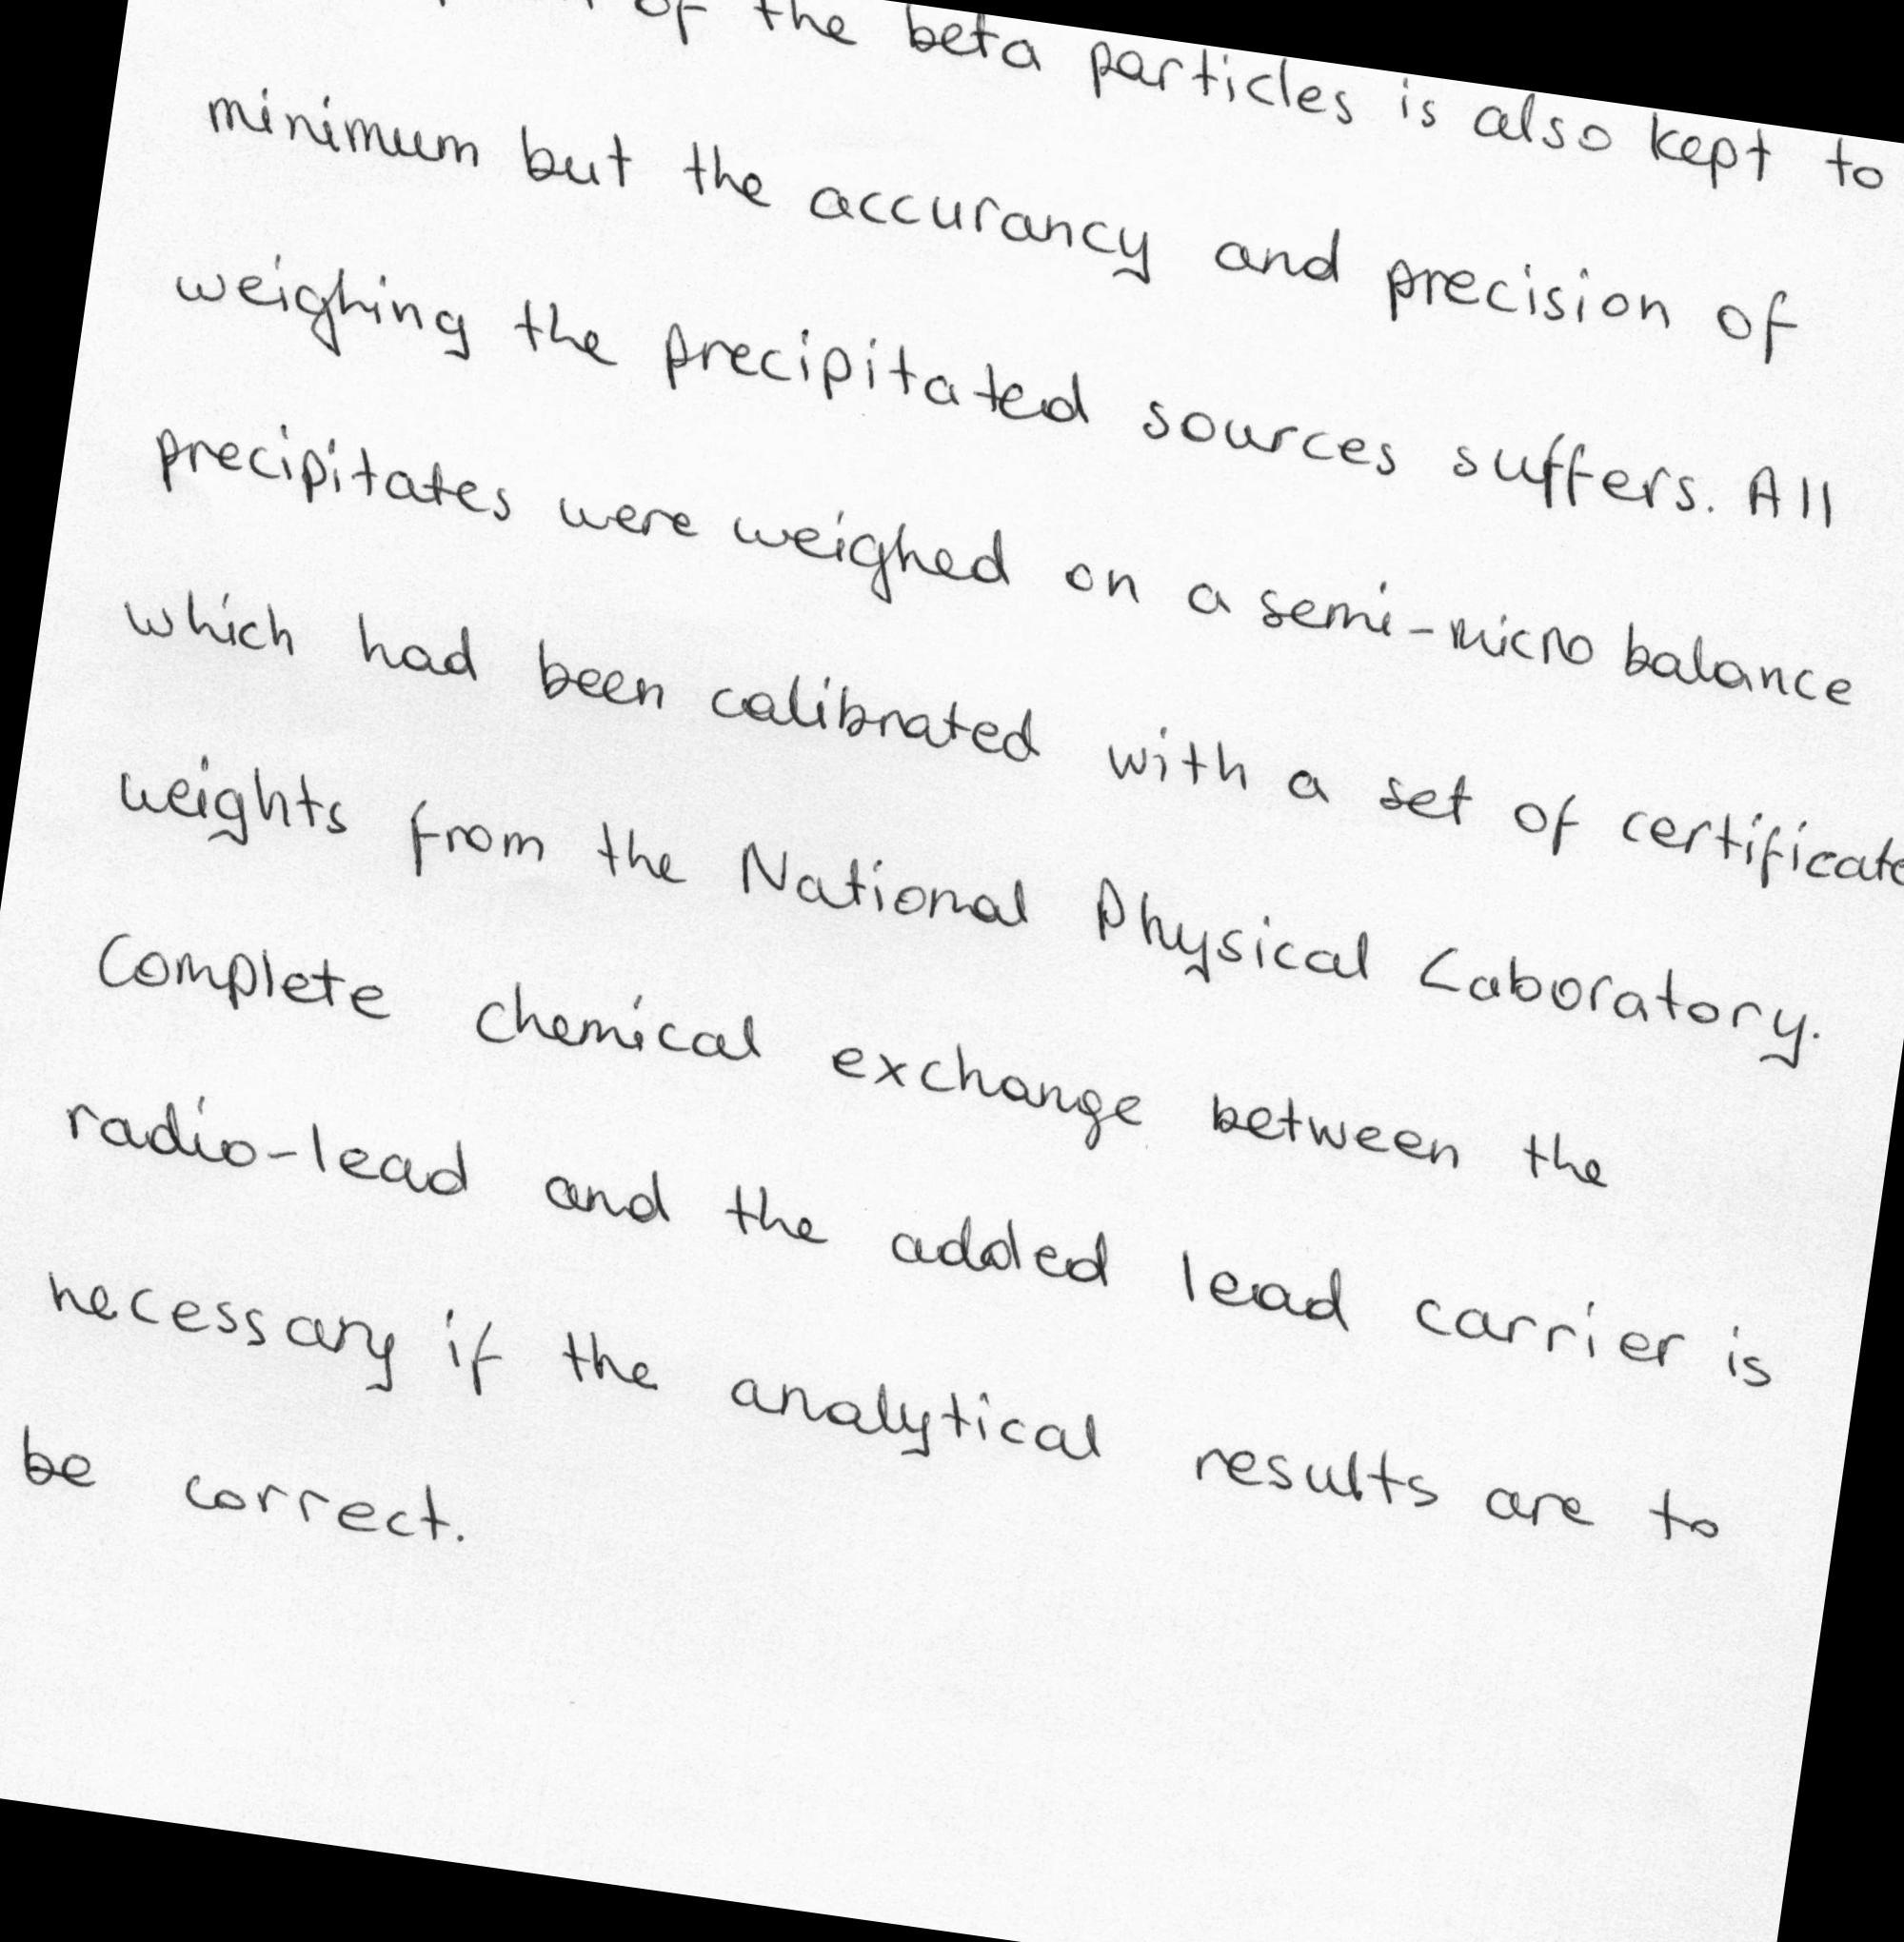 of the beta particles is also kept to
minimum but the accurancy and precision of
weighing the precipitated sources suffers. All
precipitates were weighed on a semi-micro balance
which had been calibrated with a set of certificate
weights from the National Physical Laboratory.
Complete chemical exchange between the
radio-lead and the added lead carrier is
necessary if the analytical results are to
be correct.